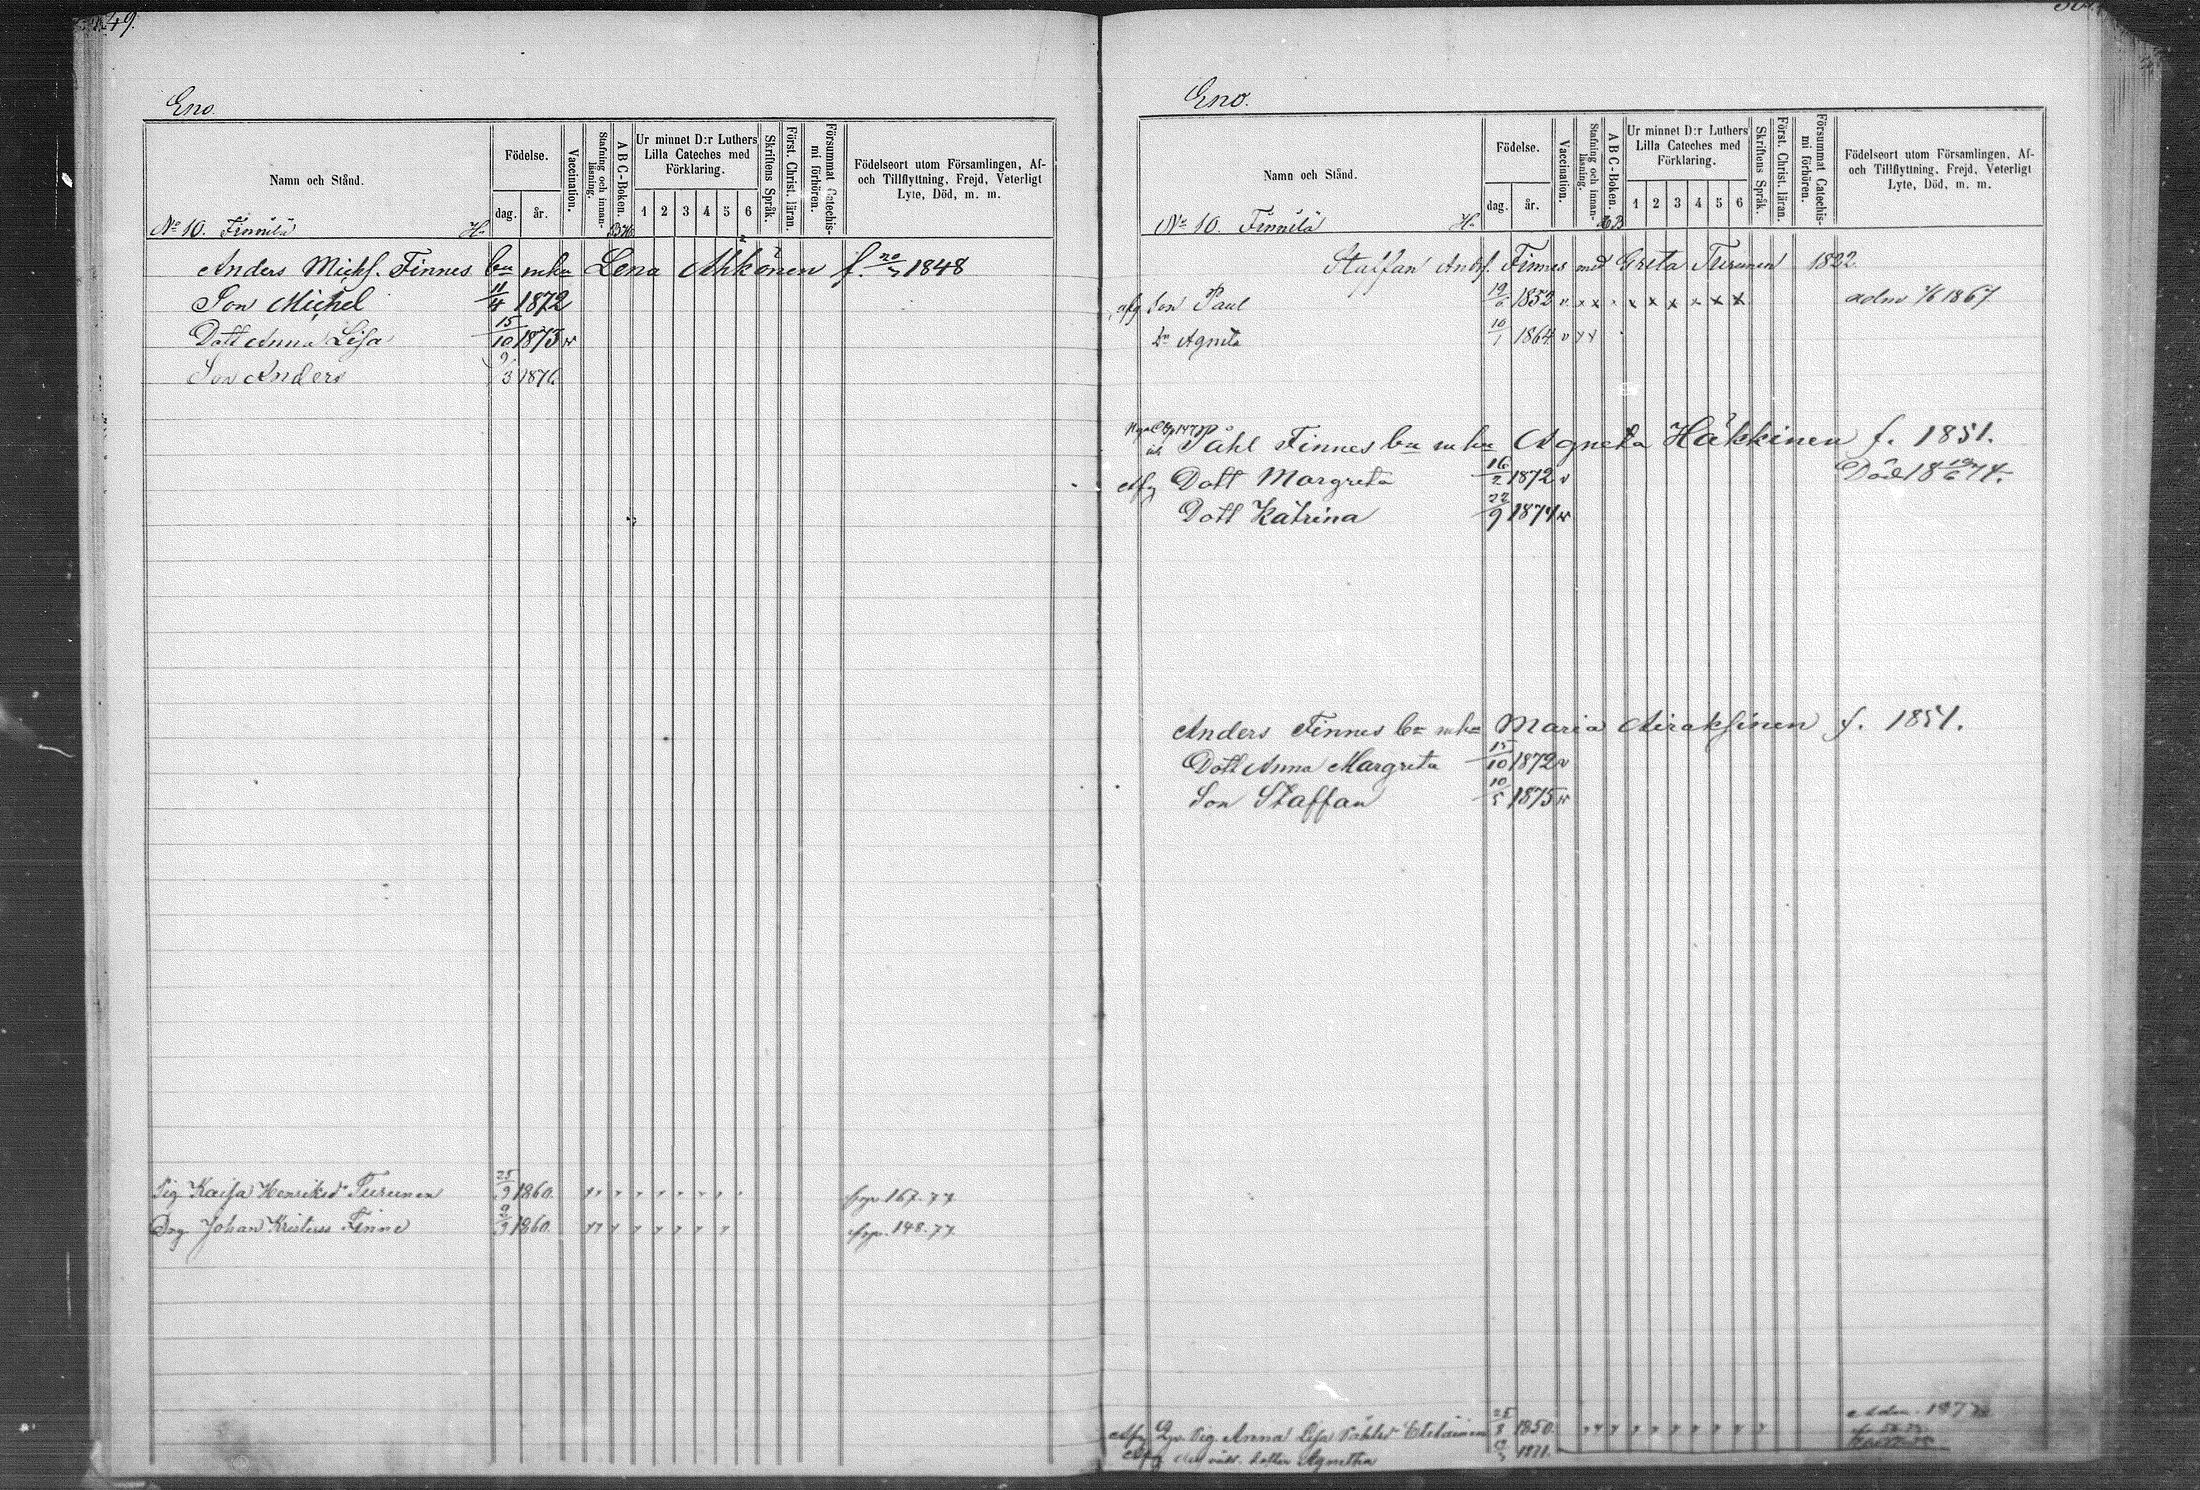 149.
Eno.
Namn och Stånd.
Födelse.
dag. år.
Vaccination.
Stafning och innan-läsning.
A B C-Boken.
Ur minnet D:r Luthers Lilla Cateches med Förklaring.
1 2 3 4 5 6
Skriftens Språk.
Först. Christ. läran.
Försummat Catechis-mi förhören.
Födelseort utom Församlingen, Af- och Tillflyttning, Frejd, Veterligt Lyte, Död, m. m.
No 10. Finnilä H.
Anders Michs. Finnes bn mhu Lena Ahkönen f. 20/7 1848
Son Michel 11/4 1872
Dott Anna Lisa 15/10 1873 v
Son Anders 9/3 1876
Pig Kaisa Henriksd Turunen 25/9 1860. 167.77
Drg Johan Kristerss Finne 1860. 148.77
Eno.
Namn och Stånd.
Födelse.
dag. år.
Vaccination.
Stafning och innan-läsning.
A B C-Boken.
Ur minnet D:r Luthers Lilla Cateches med Förklaring.
1 2 3 4 5 6
Skriftens Språk.
Först. Christ. läran.
Försummat Catechis-mi förhören.
Födelseort utom Församlingen, Af- och Tillflyttning, Frejd, Veterligt Lyte, Död, m. m.
No 10. Finnilä H.
Staffan Andsf. Finnes med Greta Turunen 1822
afg Son Paul 19/6 1852 v x x x x x x x x x adm 1867
Dr Agneta 10/1 1864 v x x
Påhl Finnes bn mhu Agneta Häkkinen f. 1851.
Afg Dott Margreta 16/2 1872 v Död 18 19/6 74.
Dott Katrina 22/9 1874 v
Anders Finnes bn mhu Maria Airaksinen f. 1851.
Dott Anna Margreta 15/10 1872 v
Son Staffan 10/5 1875 v
Afg Pig. Anna Lisa Påhlsd 25/8 1850. Adm.
Afg dotter Agnetha 1871.